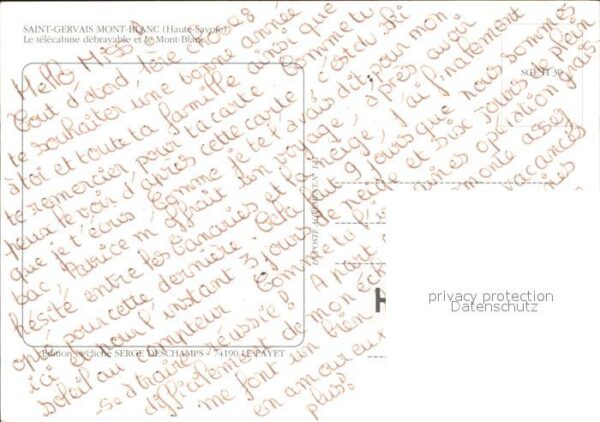 SAINT-GERVAIS MONT-BLANC (Haute-Savoie)
Le télécabine débrayable et le Mont-Blanc
SGF TI 30
LA POSTE AGREMENT N°
Hello Miss!
Tout d'abord 1ère chose
te souhaiter une bonne année
à toi et toute ta famille ainsi que
te remercier pour ta carte. Comme tu
peux le voir d'après cette carte, c'est du ski
que je t'écris. Comme je te l'avais dit pour mon
bac, Patrice m'offrait un voyage, après avoir
hésité entre les Canaries et la neige, j'ai finalement
opté pour cette dernière. Cela fait 9 jours que nous sommes
ici et pour l'instant 3 jours de neige et six jours de plein
soleil au compteur. Comme tu
se traire réussie! A part
difficilement de mon
me font un bien
en amour
plus!
opération fais
remonte assez
vacances
Edition et cliché SERGE DESCHAMPS - 74190 LE FAYET
privacy protection
Datenschutz